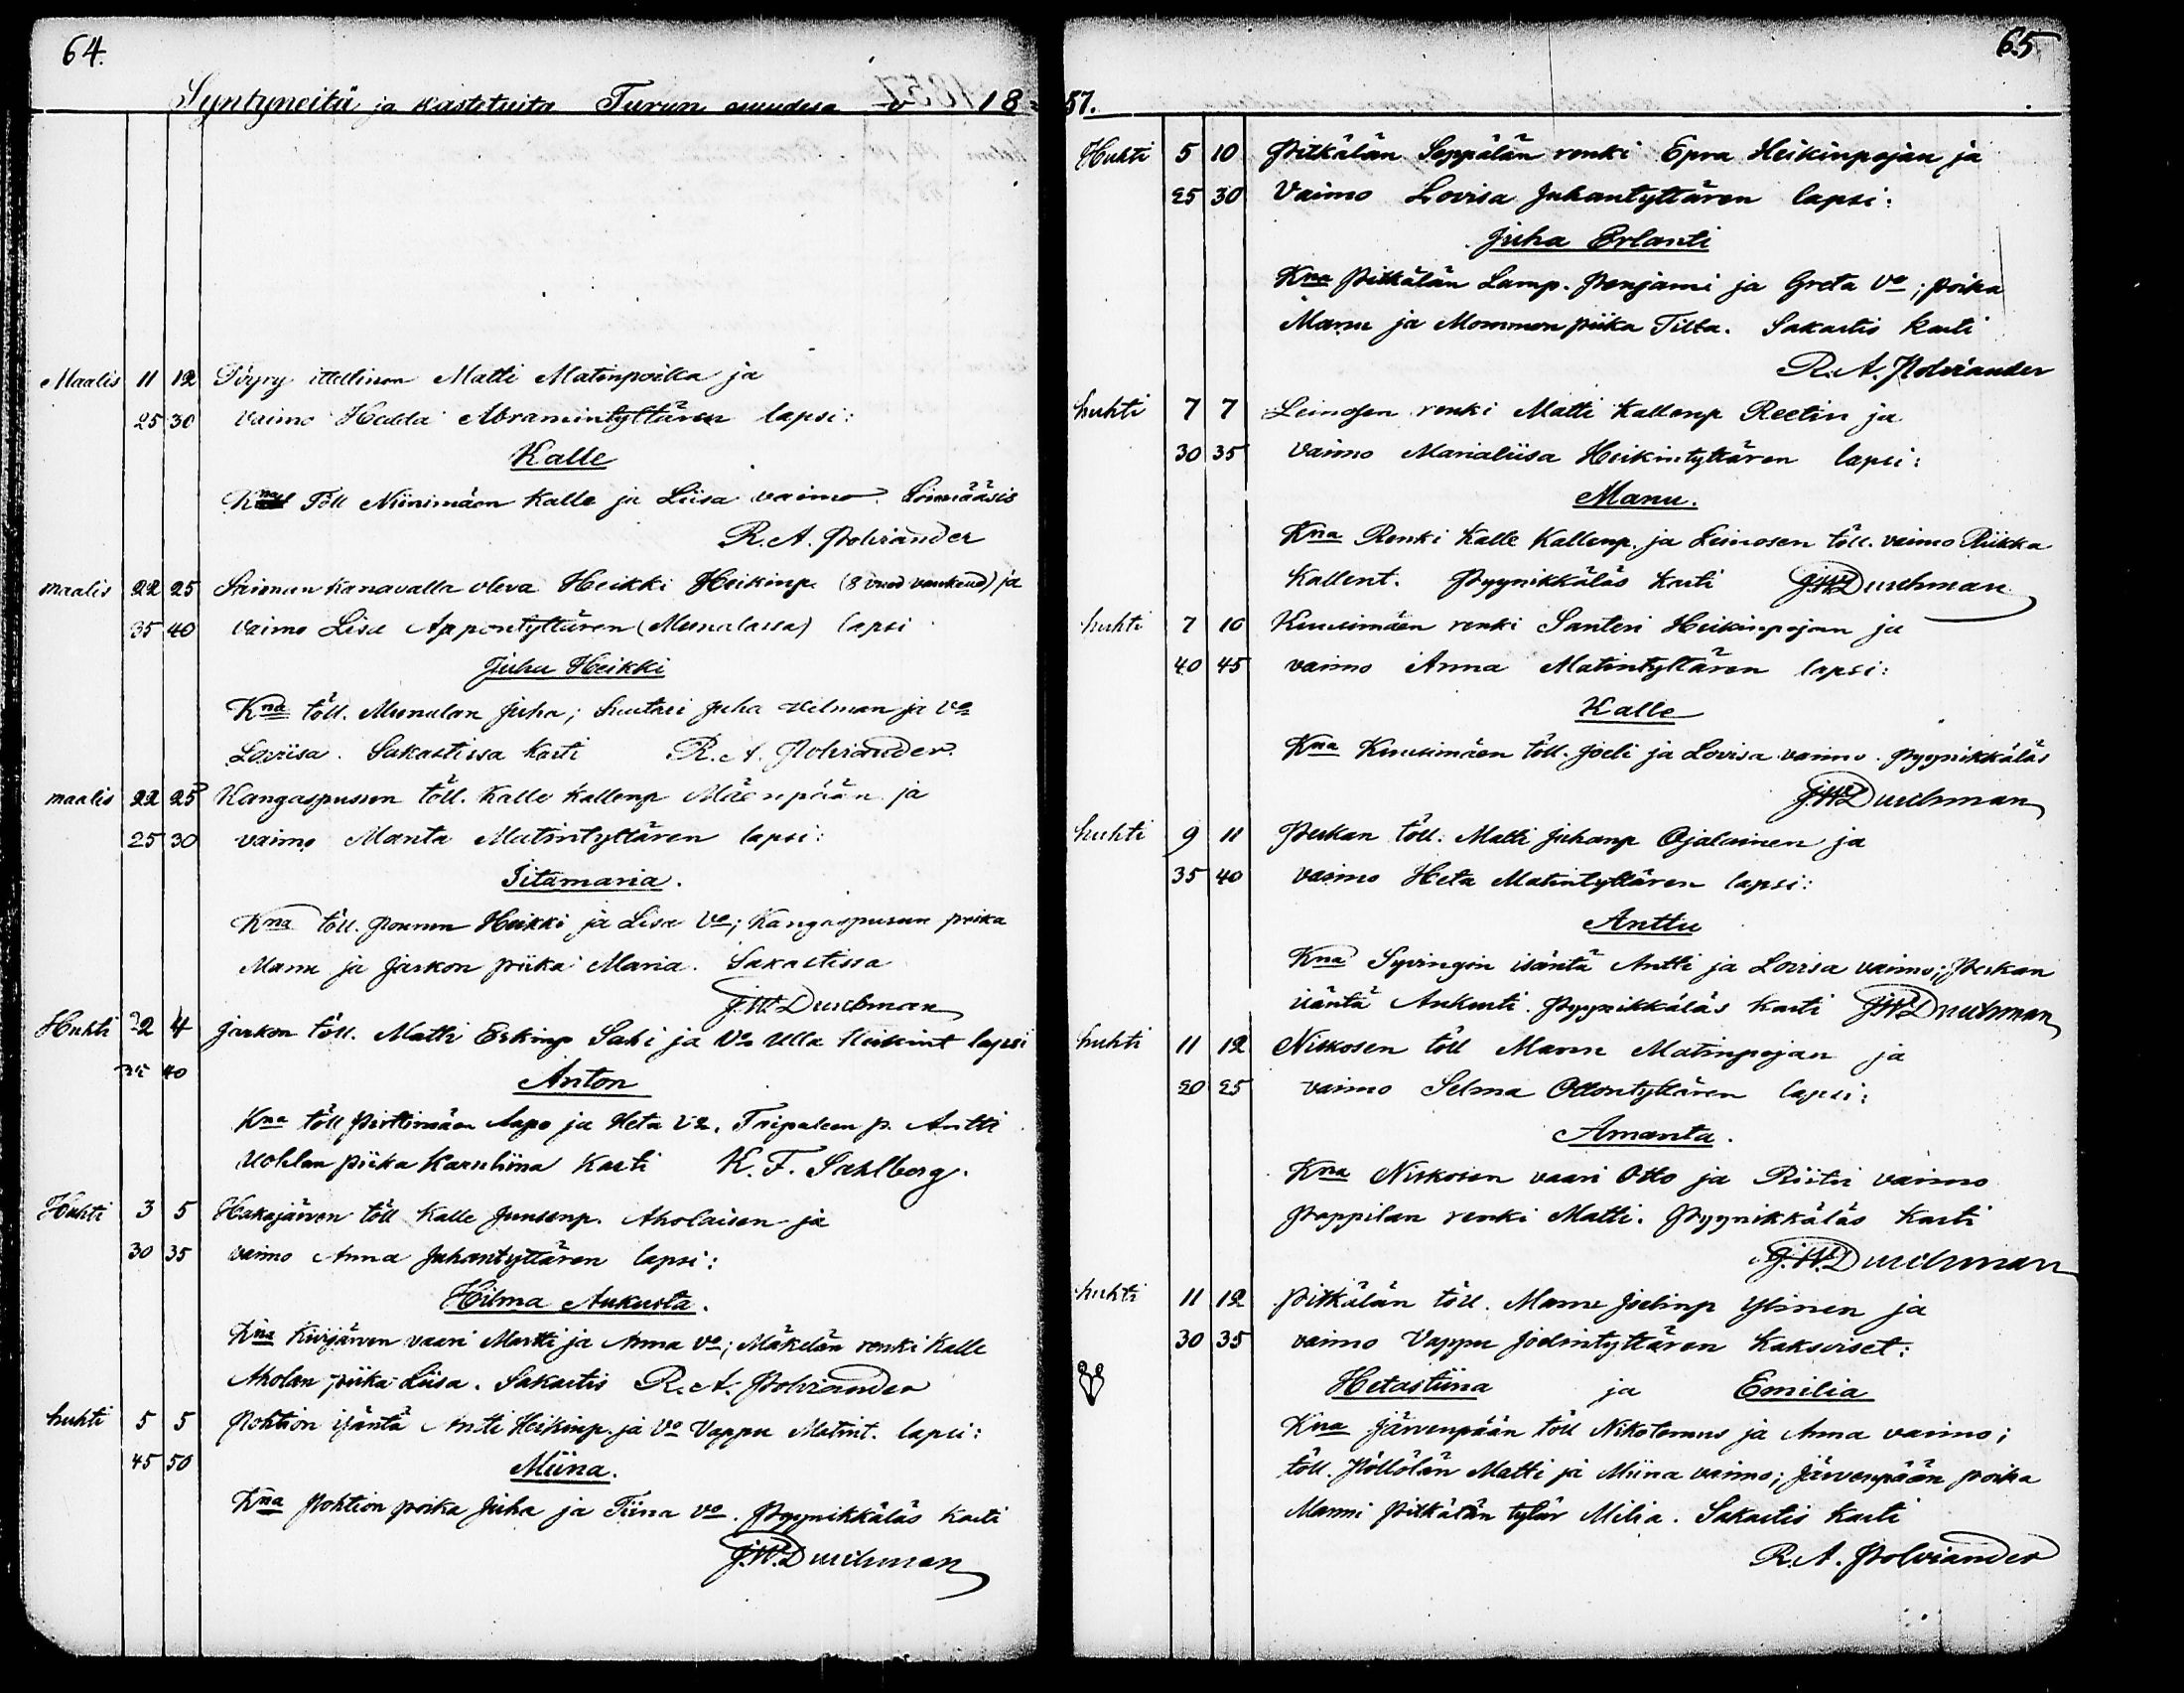 64.
Syntyneitä ja kastetuita Turun 18
Maalis 11 12 Töyry ittellinen Matti Matinpoika ja
25 30 vaimo Hedda Abramintyttären lapsi:
Kalle
Töll Niinimäen Kalle ja Liisa vaimo.
R. A. Polviander
maalis 22 25 Saiman Kanavalla oleva Heikki Heikinp. (8 ) ja
35 40 vaimo Lisa Appontyttären (Munalassa) lapsi
Juha Heikki
Kna töll. Munulan Juha; Suutari Juha Velman ja Vo
Loviisa. Sakastissa Kasti R. A. Polviander
maalis 22 25 Kangaspussen töll. Kalle Kallenp Mäenpään ja
25 30 vaimo Manta Matintyttären lapsi:
Titamaria.
Kna töll. Heikki ja Lisa Vo; Kangaspusun poika
Manu ja Jaskon piika Maria. Sakastissa
J. W. Durchman
Huhti 2 4 Jaskon töll. Matti Erkinp Sahi ja Vo Ulla Heikint lapsi
35 40 Anton
Kna töll Pirttimäen Aapo ja Heta Vo. Taipaleen p. Antti
Uotilan piika Karuliina Kasti K. F. Sahlberg.
Huhti 3 5 Hakajärven töll Kalle Junsenp. Aholaisen ja
30 35 vaimo Anna Juhantyttären lapsi:
Hilma Aukusta.
Kna Kurjärven vaari Martti ja Anna vo; Mäkelän renki Kalle
Aholan piika Liisa. Sakastis R. A. Polviander
huhti 5 5 Pohtion isäntä Antti Heikinp. ja Vo Vappu Matint. lapsi:
45 50 Miina.
Kna Pohtion poika Juha ja Tiina vo. Pyynikkäläs Kasti
J. W. Durchman
65.
57.
Huhti 5 10 Pitkälän Seppälän renki Epra Heikinpojan ja
25 30 Vaimo Lovisa Juhantyttären lapsi:
Juha Erlanti
Kna Pitkälän Lamp. Penjami ja Greta Vo; poika
Manu ja Mommon piika Tilta. Sakastis Kasti
R. A. Polviander
huhti 7 7 Leinosen renki Matti Kallenp Reetin ja
30 35 Vaimo Marialiisa Heikintyttären lapsi:
Manu.
Kna Renki Kalle Kallenp. ja Leinosen töll. vaimo Riikka
Kallent. Pyynikkäläs Kasti J. W. Durchman
huhti 7 10 Kuusimäen renki Santeri Heikinpojan ja
40 45 vaimo Anna Matintyttären lapsi:
Kalle
Kna Kuusimäen töll. Joeli ja Lovisa vaimo. Pyynikkäläs
J. W. Durchman
huhti 9 11 Peskan töll. Matti Juhanp Ojalainen ja
35 40 vaimo Heta Matintyttären lapsi:
Anttu
Kna Syvingin isäntä Antti ja Lovisa vaimo; Peskan
isäntä Aukusti. Pyynikkäläs Kasti J. W. Durchman
huhti 11 12 Niskosen töll Manu Matinpojan ja
20 25 vaimo Selma Ollontyttären lapsi:
Amanta.
Kna Niskosen vaari Otto ja Riitu vaimo
Pappilan renki Matti. Pyynikkäläs Kasti
J. W. Durchman
huhti 11 12 Pitkälän töll. Manu Joelinp Ylinen ja
30 35 vaimo Vappu Joelintyttären Kaksoiset:
Hetastiina ja Emilia
Kna Järvenpään töll Nikotemus ja Anna vaimo;
töll. Höllölän Matti ja Miina vaimo; Järvenpään poika
Manni Pitkälän tytär Milia. Sakastis Kasti
R. A. Polviander